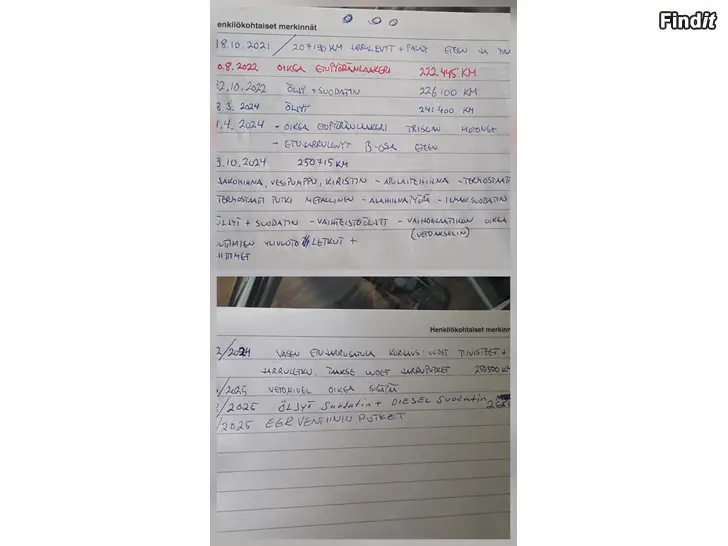 Findit
enkilökohtaiset merkinnät
18.10.2021 / 207190 KM JARRULEVYT + PALAT ETEEN JA
0.8.2022 OIKEA ETUPYÖRÄNLAAKERI 222.445 KM
2.10.2022 ÖLJY + SUODATIN 226100 KM
8.3.2024 ÖLJYT 241400 KM
1.4.2024 - OIKEA ETUPYÖRÄNLAAKERI TRISCAN
- ETUJARRULEVYT B-OSA ETEEN
3.10.2024 250715 KM
JAKOHIHNA, VESIPUMPPU, KIRISTIN - APULAITEHIHNA - TERMOSTAATI
TERMOSTAATI PUTKI METALLINEN - ALAHIHNAPYÖRÄ - ILMAN SUODATIN
ÖLJYT + SUODATIN - VAIHTEISTOÖLJYT - VAIHDELAATIKON OIKEA
YLIVUOTO LETKUT + (VETOAKSELIN)
Henkilökohtaiset merkinn
2/2024 VASEN ETUJARRUSATULA KORJAUS: UUDET TIIVISTEET +
JARRULETKU. TAAKSE UUDET JARRUPUTKET 250500 KM
/2025 VETONIVEL OIKEA SISÄPÄÄ
/2025 ÖLJYT Suodatin + DIESEL Suodatin
/2025 EGR VENTTIILIN PUTKET